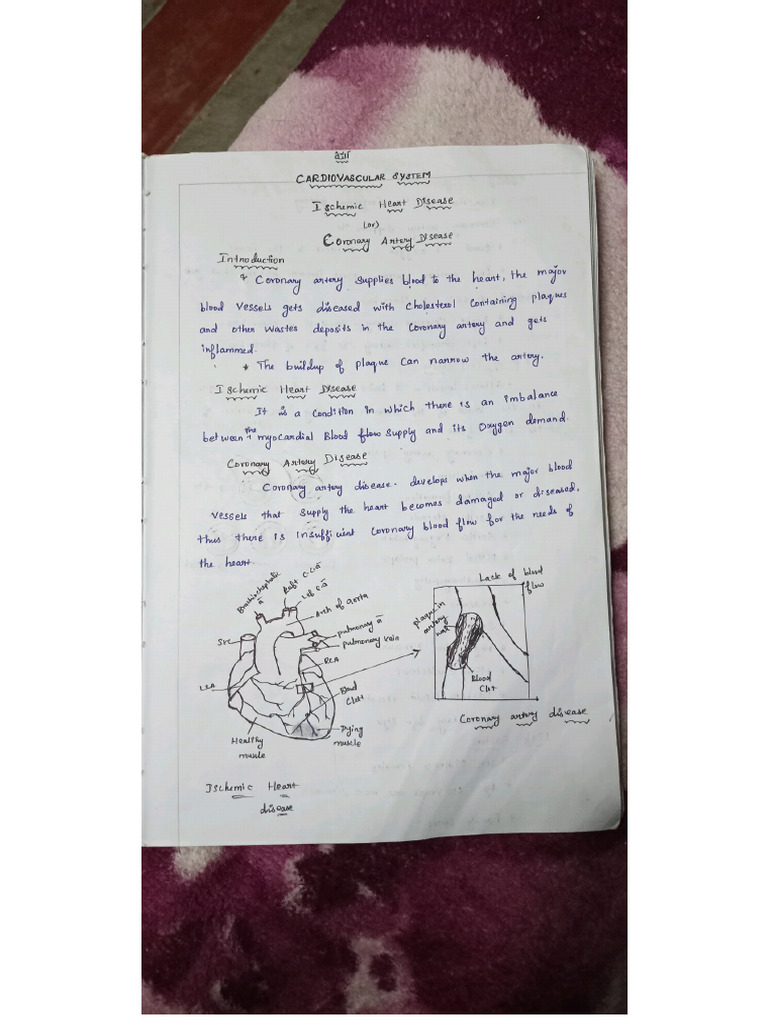 CARDIOVASCULAR SYSTEM
Ischemic Heart Disease
(or)
Coronary Artery Disease
Introduction
* Coronary artery supplies blood to the heart, the major
blood vessels gets diseased with cholesterol containing plaques
and other wastes deposits in the coronary artery and gets
inflammed.
* The buildup of plaque can narrow the artery.
Ischemic Heart Disease
It is a condition in which there is an imbalance
between the myocardial Blood flow supply and its Oxygen demand.
Coronary Artery Disease
Coronary artery disease. develops when the major blood
vessels that supply the heart becomes damaged or diseased,
thus there is insufficient coronary blood flow for the needs of
the heart.
Brachiocephalic a
Left C.C.a
Arch of aorta
pulmonary a
pulmonary vein
SVC
RCA
LCA
Blood
Clot
Dying
muscle
Healthy
muscle
Ischemic Heart
disease
Lack of blood
flow
plaque in
artery
wall
Blood
Clot
Coronary artery disease